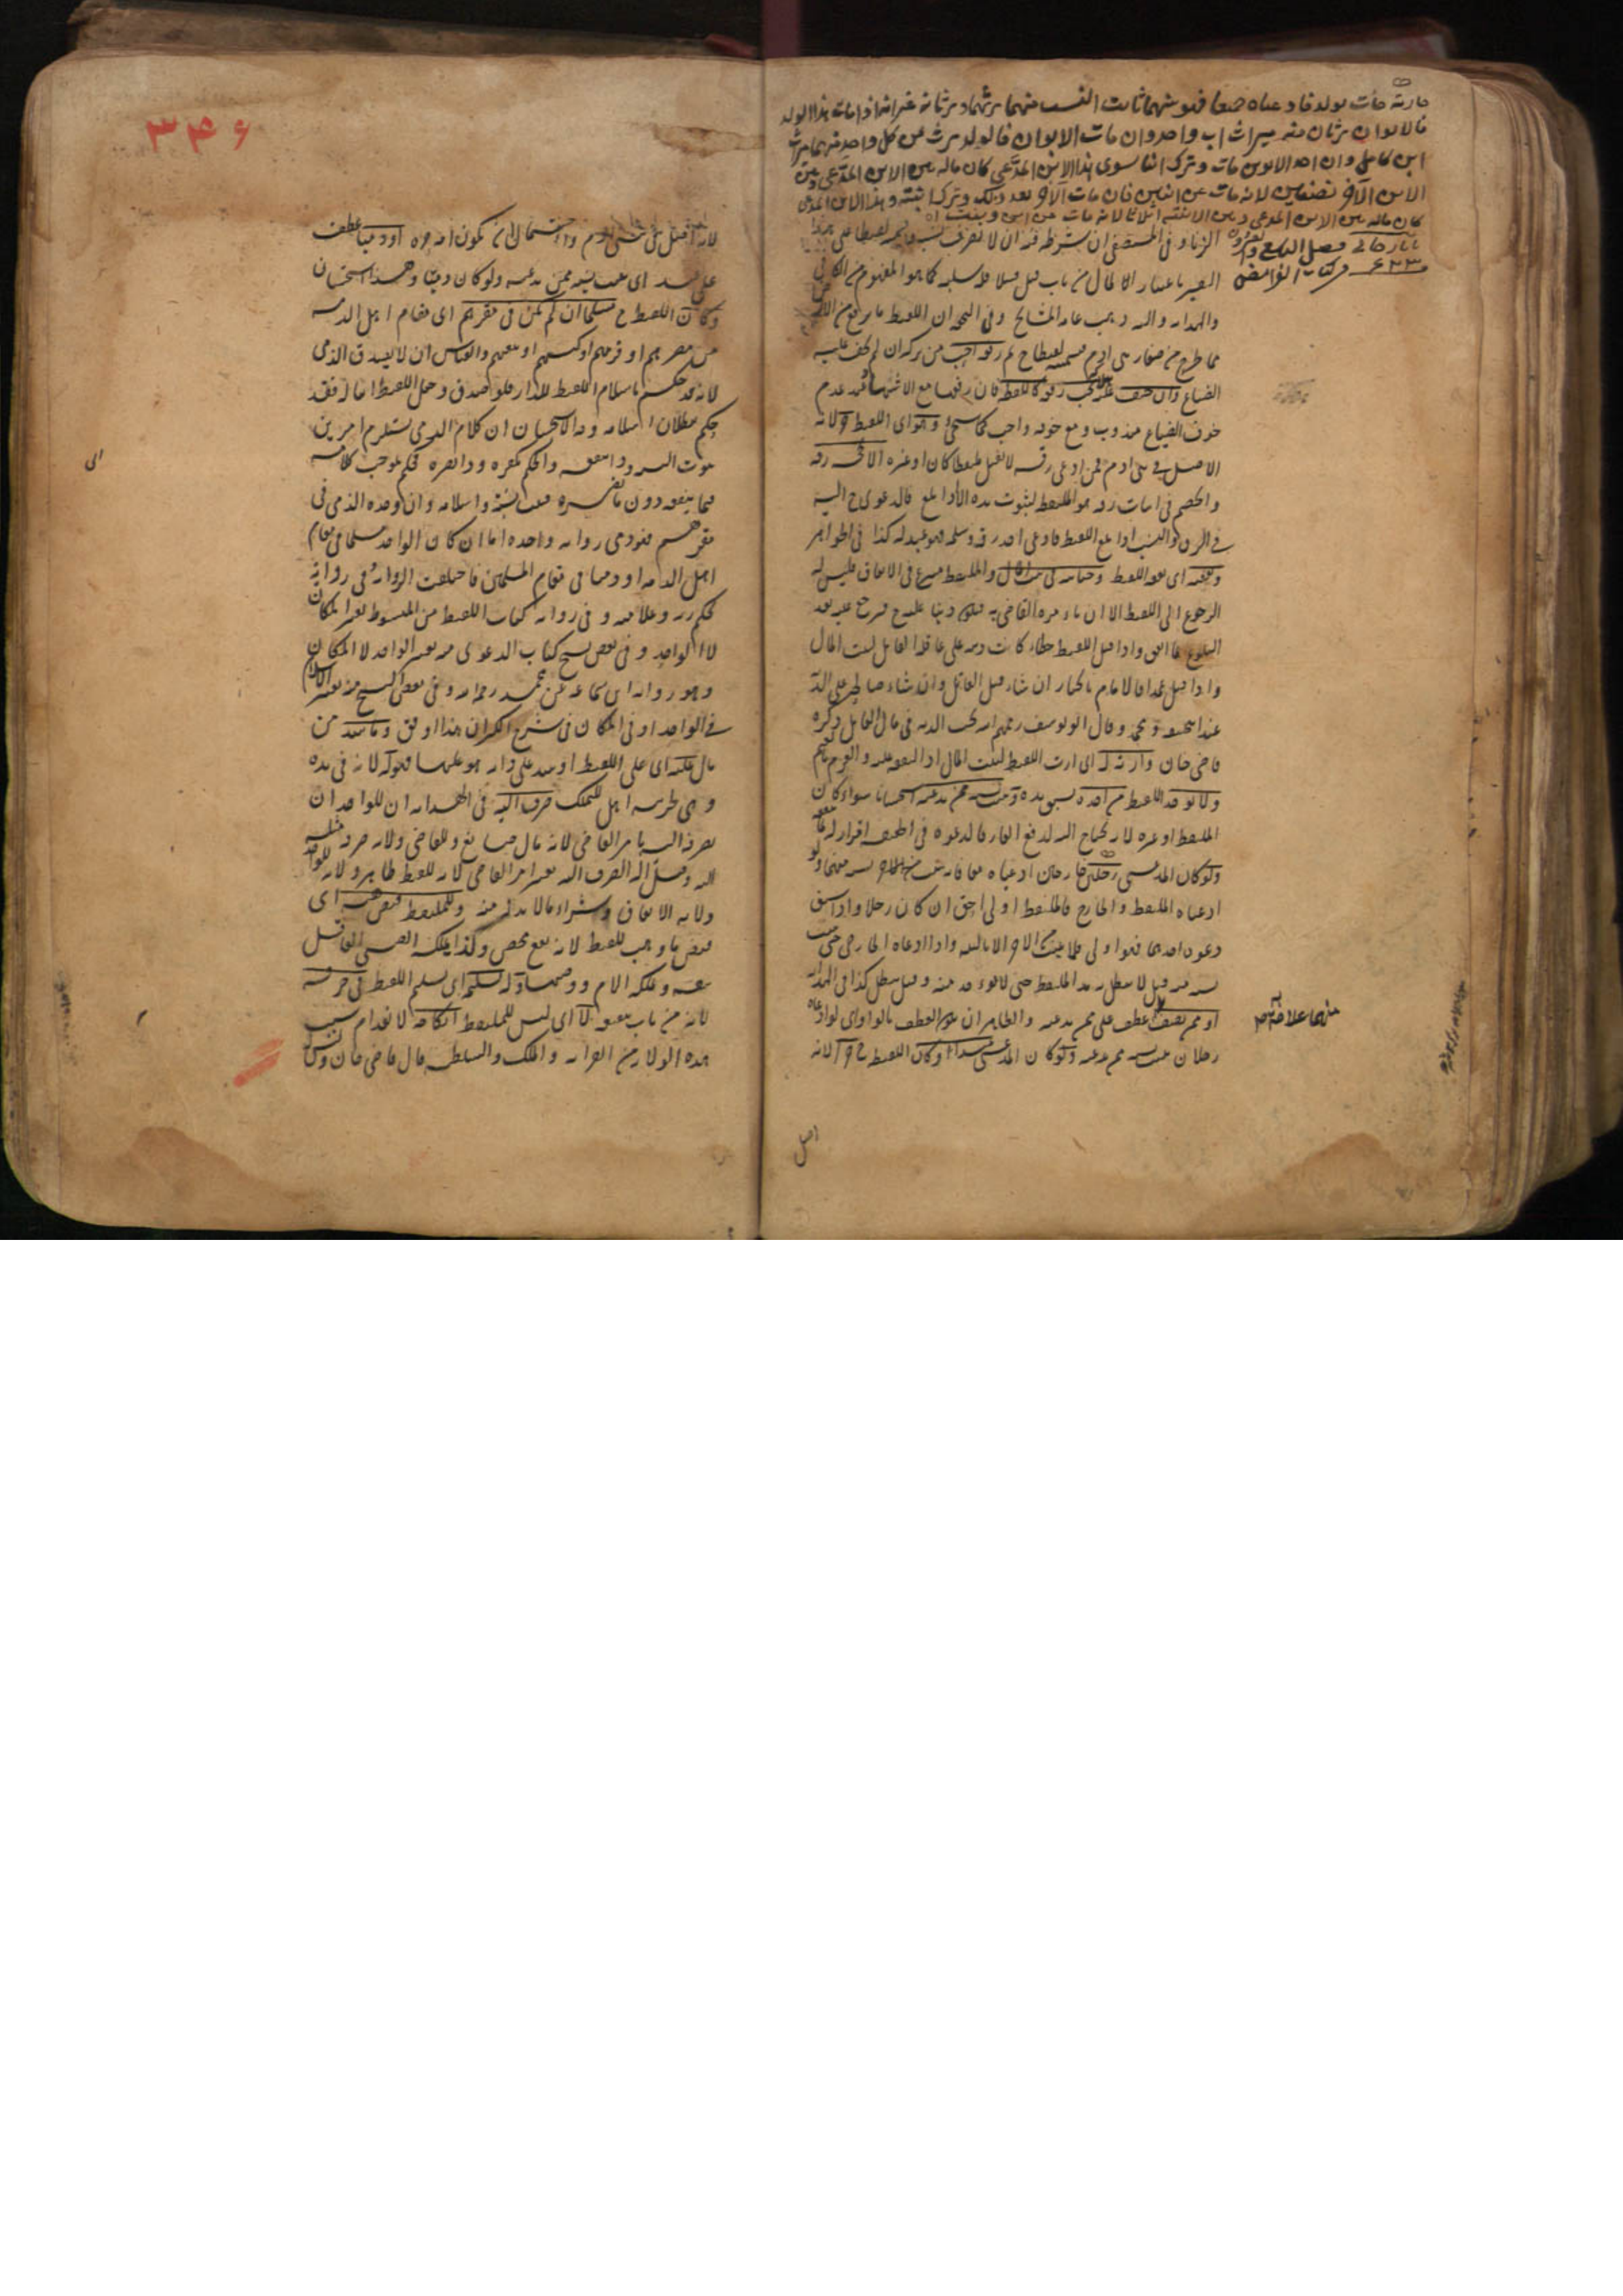 جارية جاءت بولد فادعياه جميعا فهو منهما ثابت النسب منهما يرثهما ويرثانه غير انه اذا مات هذا الولد
فالابوان يرثان منه ميراث اب واحد وان مات الابوان فالولد يرث من كل واحد منهما ميراث
ابن كامل وان احد الابوين مات وترك ابنا سوى هذا الابن المدعى كان ماله بين الابن المدعى وبين
الابن الآخر نصفين لانه مات عن ابنين فان مات الآخر بعد ذلك وترك ابنته وهذا الابن المدعى
كان ماله بين الابن المدعى وبين الابنة اثلاثا لانه مات عن ابن وبنت اه
تاتارخانى فصل التاسع و
٦٢٣ من كتاب الفرائض
الزنا وفى المستصفى ان شرطه فيه ان لا يعرف نسبه
باعتبار المال من باب قتل قتيلا فله سلبه كما هو المفهوم من الكافى
والهداية واليه ذهب عامة المشايخ وفى ان اللقيط ما يرفع من الارض
مما طرح من صغار بنى ادم رفعه احب من تركه ان لم يخف عليه
الضياع وان خيف عليه يجب رفعه كاللقطة فان رفعها مع الاشهاد عند عدم
خوف الضياع مندوب ومع خوفه واجب كما سيجئ وهو اى اللقيط حر لانه
الاصل فى بنى ادم فمن ادعى رقه لا يقبل ملتقطا كان او غيره الا بحجة رقه
والخصم فى اثبات رقه هو الملتقط لثبوت يده الا اذا بلغ فالدعوى ح اليه
فى الرق والنسب اذا بلغ اللقيط فادعى احد رقه وسلم فهو عبد له كذا فى الجواهر
ونفقته اى نفقة اللقيط وجنايته فى بيت المال والملتقط متبرع فى الانفاق فليس له
الرجوع الى اللقيط الا ان يامره القاضى به فيكون دينا عليه ح فيرجع عليه بعد
البلوغ بما انفق واذا قتل اللقيط خطاء كانت ديته على عاقلة القاتل لبيت المال
واذا قتل عمدا فالامام بالخيار ان شاء قتل القاتل وان شاء صالحه على الدية
عند ابيحنيفة ومحمد وقال ابو يوسف رحمهم الله تجب الدية فى مال القاتل ذكره
قاضى خان وارثه له اى ارث اللقيط لبيت المال اذ النفقة عليه والغرم بالغنم
ولا يؤخذ اللقيط من اخذه لسبق يده ويثبت نسبه ممن يدعيه استحسانا سواء كان
الملتقط او غيره لانه يحتاج اليه لدفع العار فالدعوه فى الحقيقة اقرار له
ولو كان المدعى رجلين خارجان ادعياه معا فانه يثبت نسبه منهما ولو
ادعياه الملتقط والخارج فالملتقط اولى احق ان كان رجلا واذا سبق
دعوة احدهما فهو اولى فلا يثبت الاخر الا بالبينة واذا ادعاه الخارجى حتى يثبت
نسبه منه قيل لا يبطل يد الملتقط حتى لا يؤخذ منه وقيل يبطل كذا فى الهداية
او ممن يصف عطف على ممن يدعيه والظاهر ان يكون العطف بالواو اى لو ادعاه
رجلان يثبت نسبه ممن يدعيه ولو كان المدعى عبدا وكان اللقيط ح حرا لانه
منهما علامة به صح
اصل
٣٤٦
لانه اصل فى بنى ادم واحتمال ان يكون امه حرة او ذميا عطف
على عبد اى يثبت نسبه ممن يدعيه ولو كان ذميا وهذا استحسان
وكان اللقيط ح مسلما ان لم يكن فى مقرهم اى مقام اهل الذمة
من مصرهم او قريتهم او كنيستهم او بيعتهم والقياس ان لا يصدق الذمى
لانه قد حكم باسلام اللقيط للدار فلو صدق وجعل اللقيط ابنا له فقد
حكم ببطلان اسلامه وجه الاستحسان ان كلام الذمى يستلزم امرين
ثبوت النسب وذا ينفعه والحكم بكفره وذا يضره فحكم بموجب كلامه
فيما ينفعه دون ما يضره فيثبت نسبه واسلامه وان وجده الذمى فى
مقرهم فهو ذمى رواية واحدة اما ان كان الواجد مسلما فى مقام
اهل الذمة او ذميا فى مقام المسلمين فاختلفت الرواية فى رواية
يحكم بزيه وعلامته وفى رواية كتاب اللقيط من المبسوط يعتبر المكان
لا الواجد وفى بعض نسخ كتاب الدعوى منه يعتبر الواجد لا المكان
وهو رواية ابن سماعة عن محمد رحمه الله وفى بعض النسخ منه يعتبر الاسلام
فى الواجد او فى المكان فى شرح الكنز ان هذا اوفق وما شد من
مال عليه اى على اللقيط او شد على دابة هو عليها فهو له لانه فى يده
وهى حريته اهل للملك صرف اليه فى الهداية ان للواجد ان
يصرفه اليه بامر القاضى لانه مال ضايع وللقاضى ولاية صرف مثله
اليه وقيل له الصرف اليه بغير امر القاضى لانه للقيط ظاهرا ولانه للواجد
ولاية الانفاق وشراء مالا بد له منه وللملتقط قبض هبته اى
قبض ما وهب للقيط لانه نفع محض وكذا يملكه الصبى العاقل
بنفسه ويملكه الام ووصيها وله تسليمه اى تسليم اللقيط فى حرفة
لانه من باب نفعه لا اى ليس للملتقط انكاحه لانعدام سبب
هذه الولاية من القرابة والملك والسلطنة قال قاضى خان وليس
اى